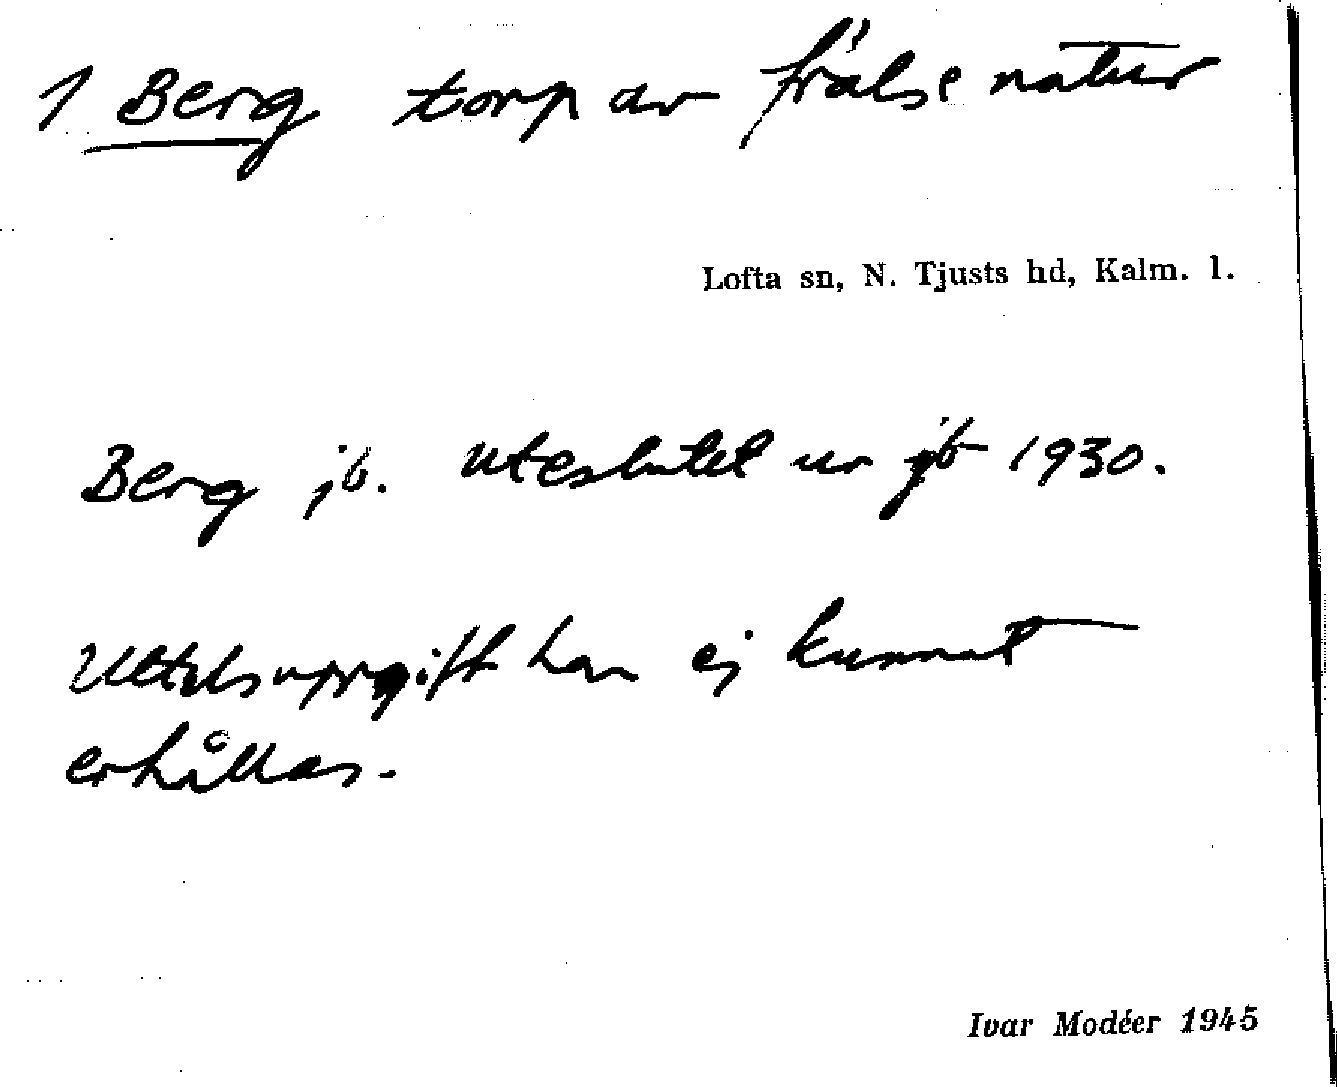 1 Berg torp av frälse natur
Lofta sn, N. Tjusts hd, Kalm. l.
Berg jb. Uteslutet ur jb 1930.
Uttalsuppgift har ej kunnat
erhållas.
Ivar Modéer 1945